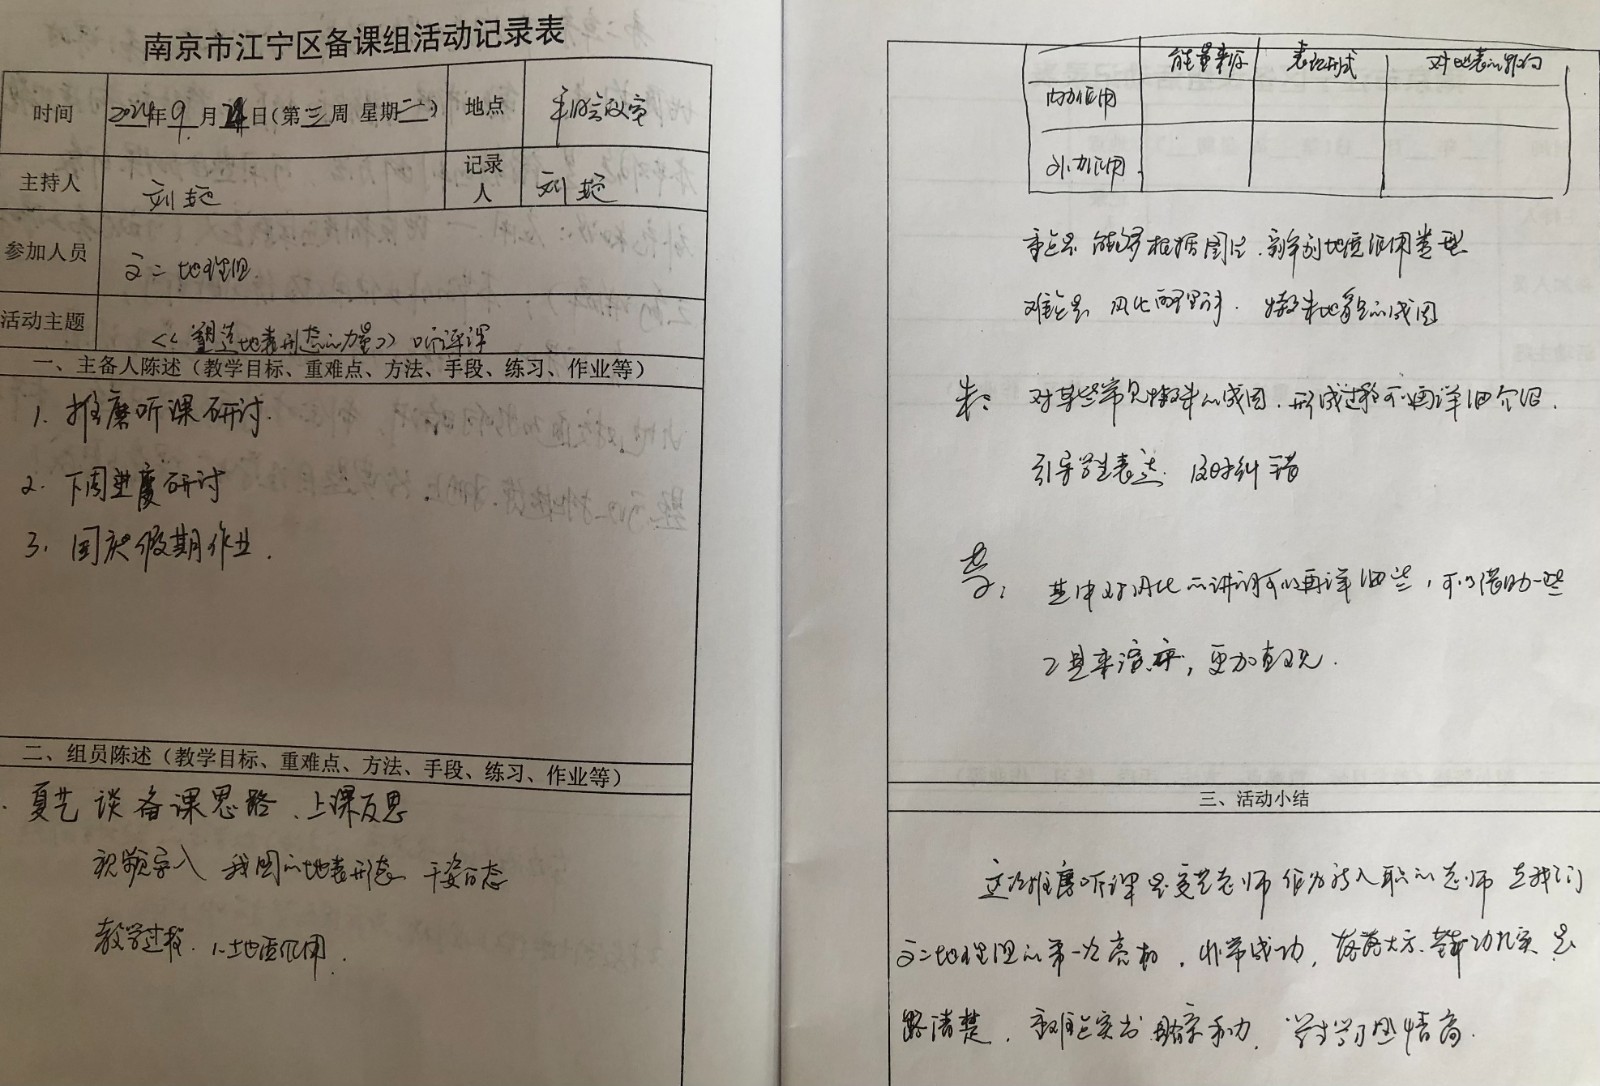 南京市江宁区备课组活动记录表
时间 2024年9月24日(第三周 星期二) 地点
主持人 刘艳 记录人 刘艳
参加人员 文二地理组
活动主题 《塑造地表形态的力量》听评课
一、主备人陈述（教学目标、重难点、方法、手段、练习、作业等）
1. 推磨听课研讨.
2. 下周进度研讨
3. 国庆假期作业.
二、组员陈述（教学目标、重难点、方法、手段、练习、作业等）
夏艺 谈备课思路、上课反思
视频导入 我国的地表形态 千姿百态
教学过程. 1.地质作用.
能量来源 表现形式 对地表的影响
内力作用
外力作用
重点是 能够根据图片.判别地质作用类型
难点是 风化的理解. 特殊地貌的成因
朱: 对某些常见地貌的成因.形成过程可以再详细介绍.
引导学生表达 及时纠错
其中对风化的讲解可以再详细些，可以借助一些
工具来演示，更加直观.
三、活动小结
这次推磨听课是夏艺老师作为新入职的老师在我们
文二地理组的第一次亮相，非常成功，落落大方.基本功扎实 思
路清楚，重难点突出 亲和力，学生学习热情高.